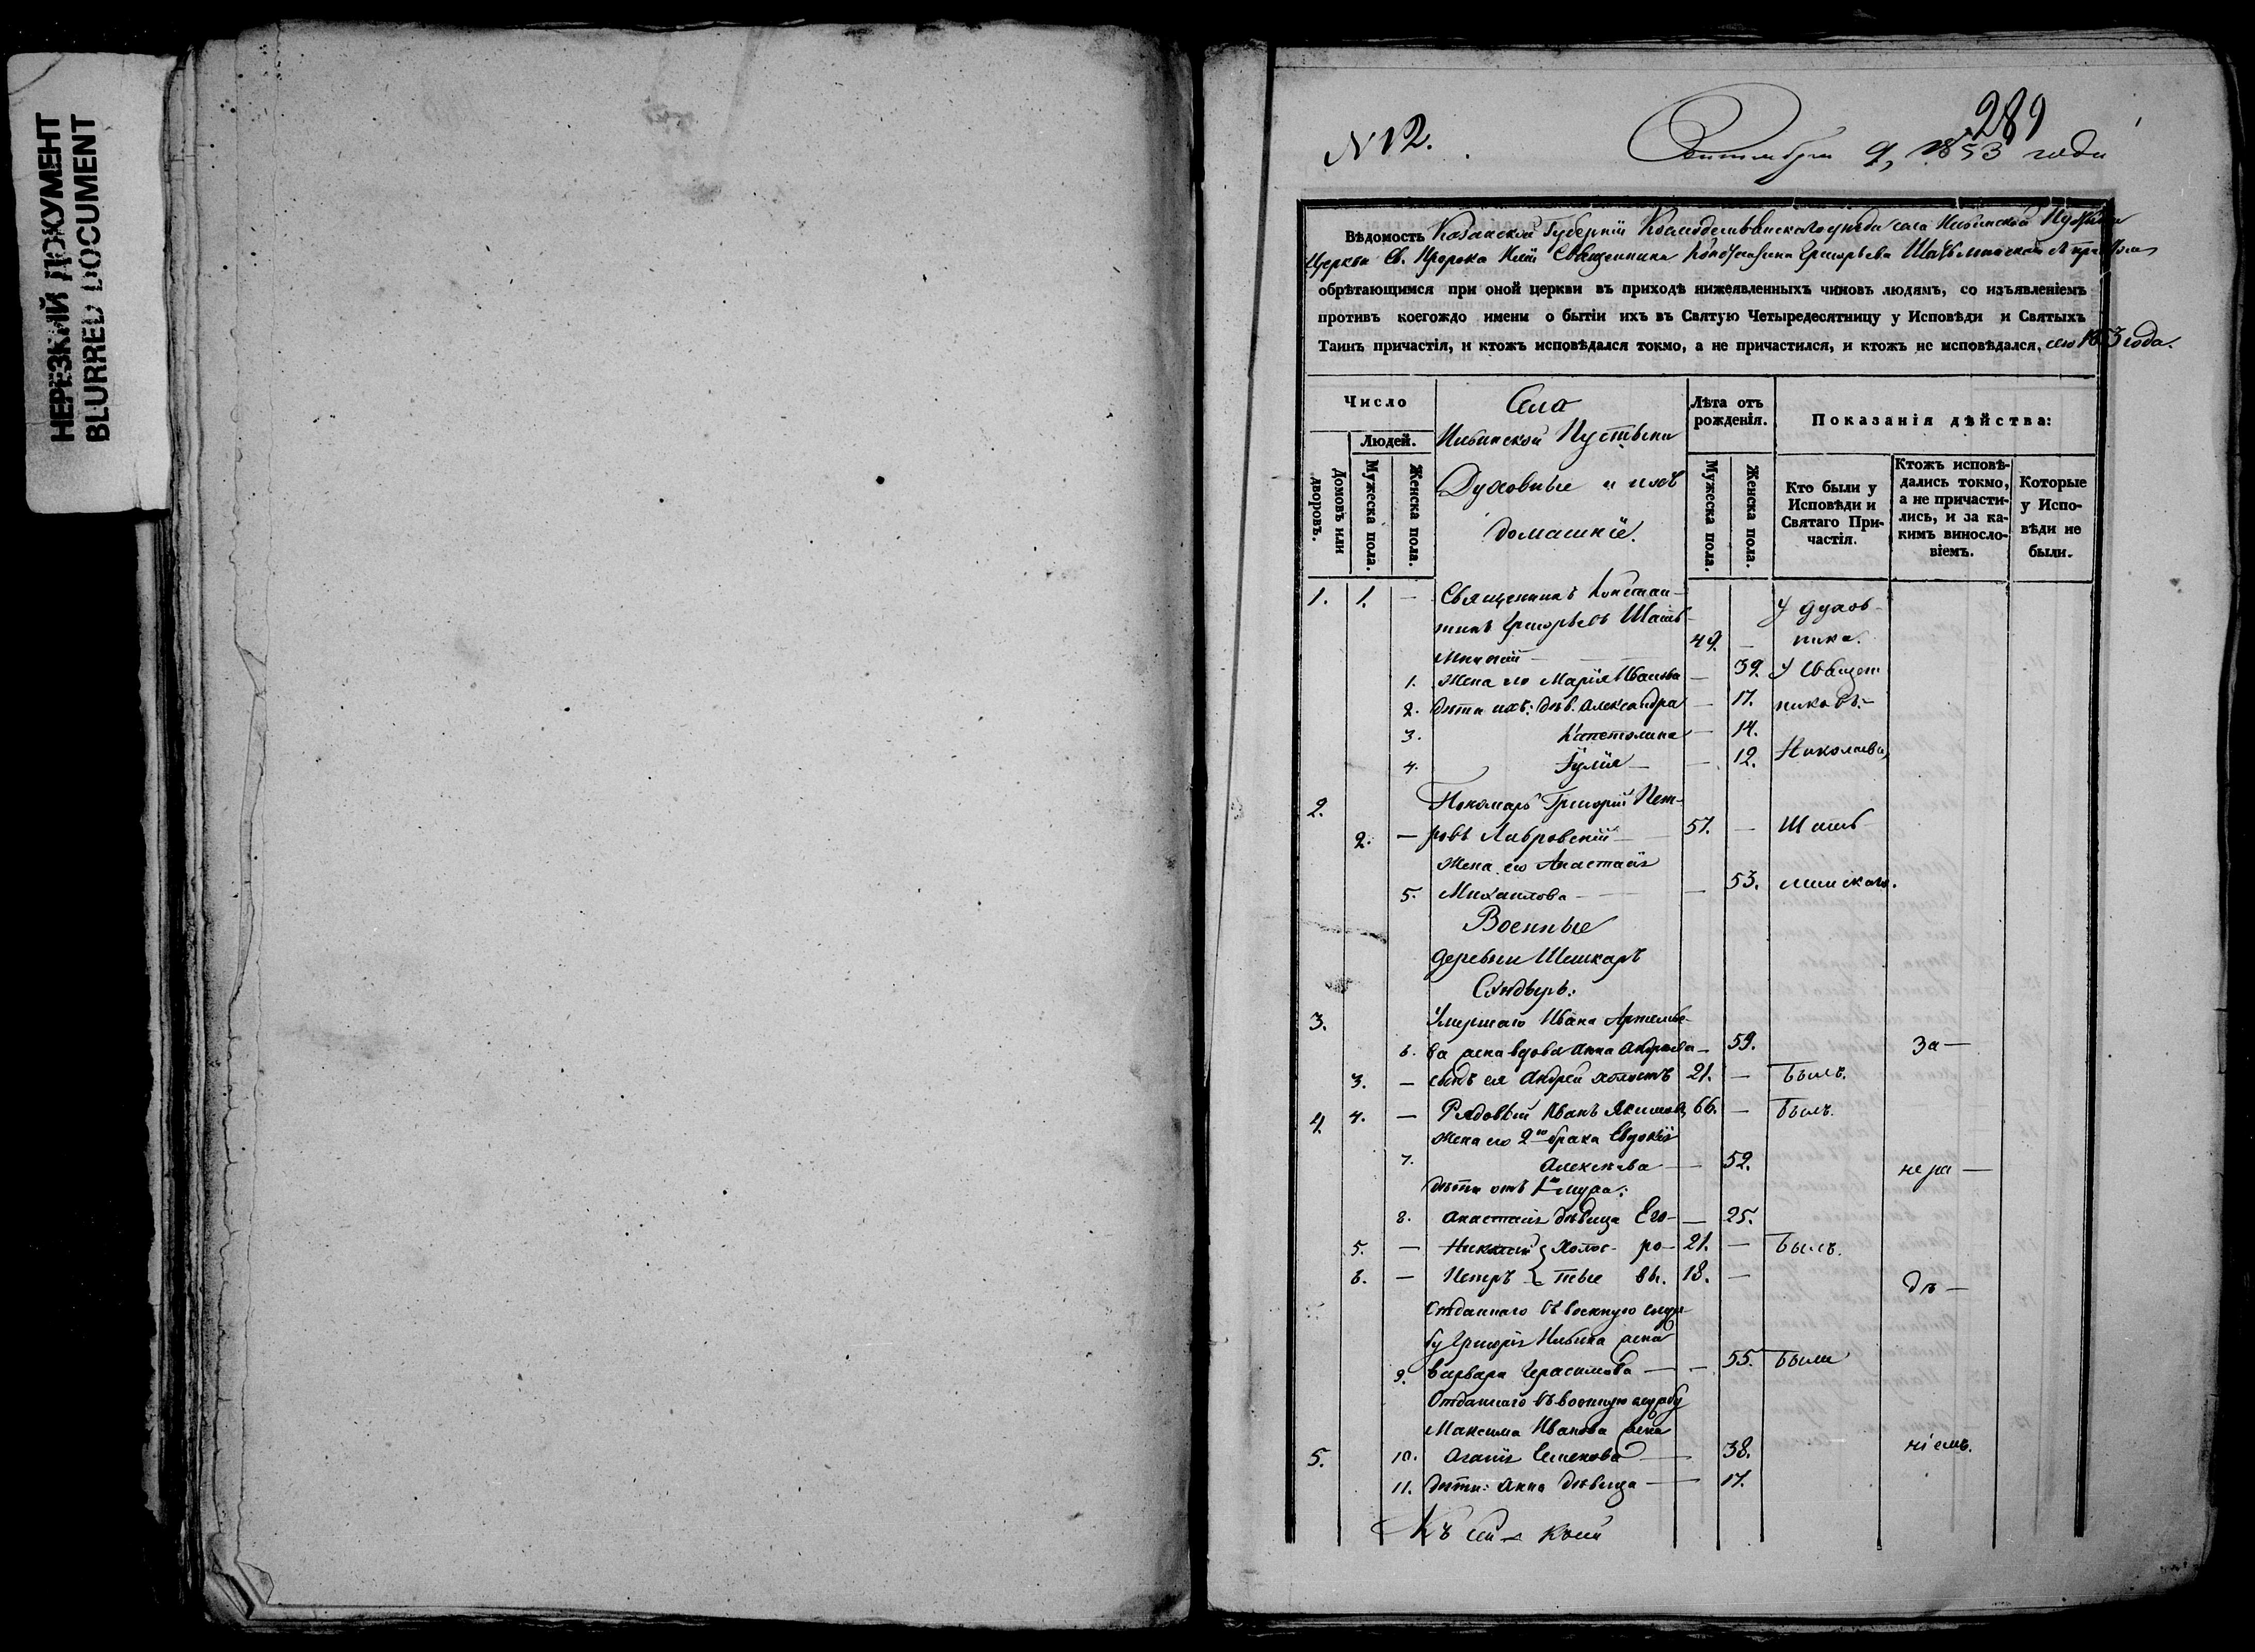 НЕРЕЗКИЙ ДОКУМЕНТ
BLURRED DOCUMENT
N 12.
289
Сентября 9, 1853 года
Вѣдомость Казанской Губерніи Козмодемьянскаго уѣзда села Ильинской Пустыни
Церкви Св. Пророка Иліи Священника Константина Григорьева
обрѣтающимся при оной церкви въ приходѣ нижеявленныхъ чиновъ людямъ, со изъявленіемъ
противъ коегождо имени о бытіи ихъ въ Святую Четыредесятницу у Исповѣди и Святыхъ
Таинъ причастія, и ктожъ исповѣдался токмо, а не причастился, и ктожъ не исповѣдался, сего 1853 года.
Число
Людей.
Домовъ или дворовъ.
Мужеска пола.
Женска пола.
Села
Ильинской Пустыни
Духовные и ихъ
домашніе.
Лѣта отъ рожденія.
Мужеска пола.
Женска пола.
Показанія дѣйства:
Кто были у Исповѣди и Святаго Причастія.
Ктожъ исповѣдались токмо, а не причастились, и за какимъ винословіемъ.
Которые у Исповѣди не были.
1. 1. — Священникъ Констан- У духов-
тинъ Григорьевъ Шать- 49. — ника.
минскій
1. Жена его Марія Иванова — 39. У Священ
2. дѣти ихъ: дѣв. Александра — 17. никовъ:
3. Капетолина — 14.
4. Іулія — — 12. Николаева,
2. Пономарь Григорій Пет-
2. — ровъ Лавровскій — 57. — Шать
Жена его Анастасія
5. Михаилова — — 53. минскаго.
Военные
деревни Шешкаръ
Сюндырь:
3. Умершаго Ивана Артемье-
6. ва жена вдова Анна Андреева — 59. За —
3. — сынъ ея Андрей холостъ 21. — былъ.
4. 4. — Рядовый Иванъ Якимовъ 66. — былъ.
Жена его 2го брака Евдокія
7. Алексѣева — — 52. нера —
дѣти отъ 1го мужа:
8. Анастасія дѣвица Его- — 25.
5. — Николай } Холос- ро- 21. — былъ.
6. — Петръ } тые вы. 18. — дѣ —
Отданнаго въ военную служ-
бу Григорія Ильина жена
9. Варвара Герасимова — — 55. были
Отданнаго въ военную службу
Максима Иванова жена
5. 10. Агафія Семенова — 38. ніемъ.
11. дѣти: Анна дѣвица — 17.
Къ сей